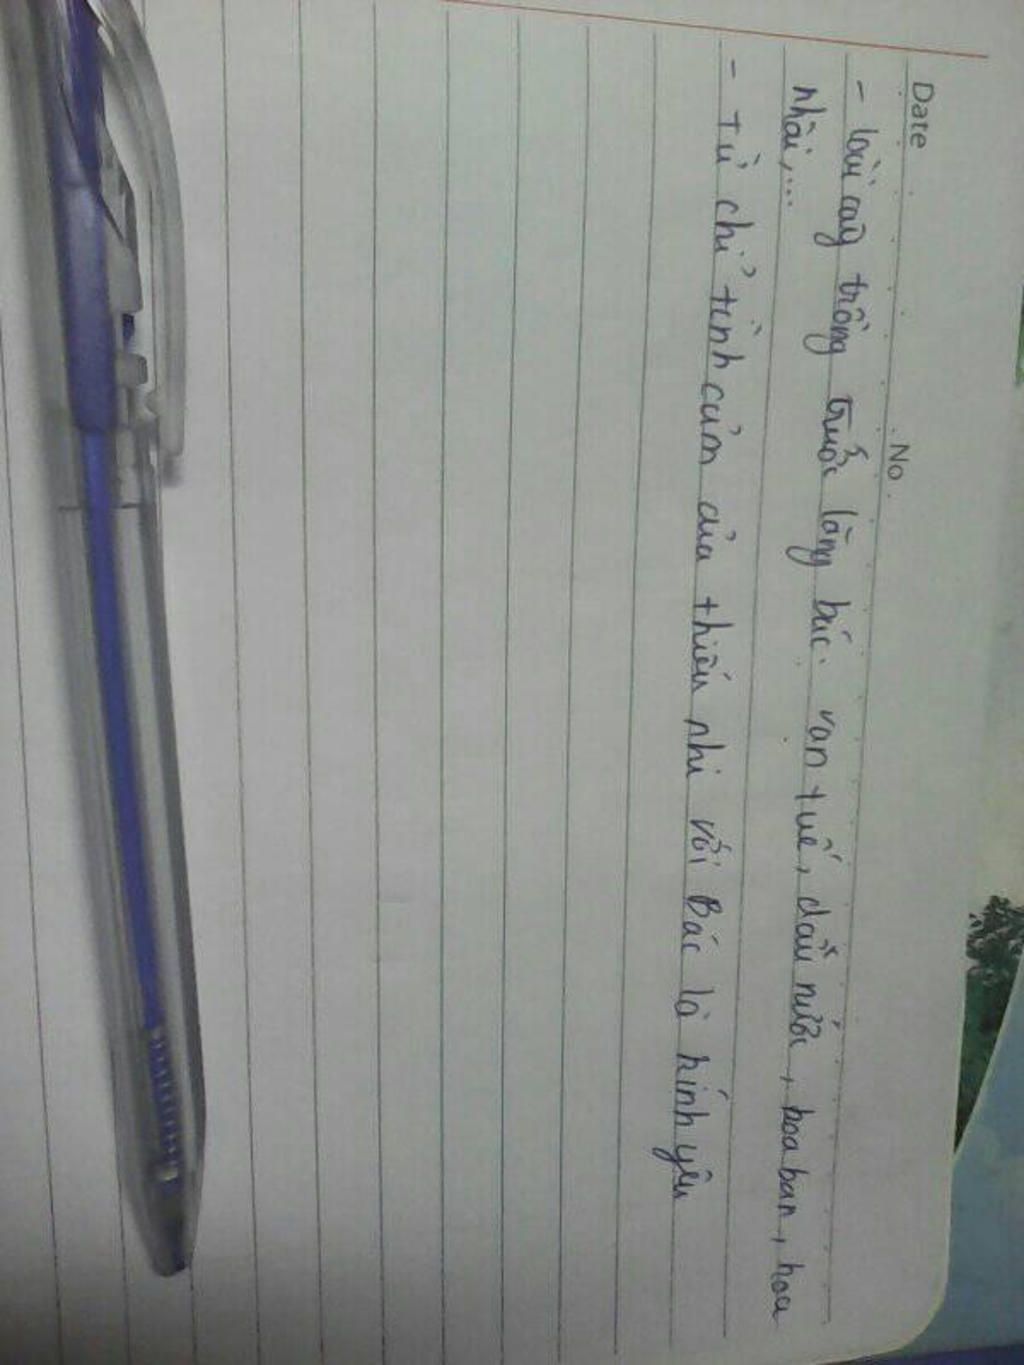 Date No.
- loài cây trồng trước lăng bác. vạn tuế, dầu nước, hoa ban, hoa
nhài,...
- từ chỉ tình cảm của thiếu nhi với Bác là kính yêu